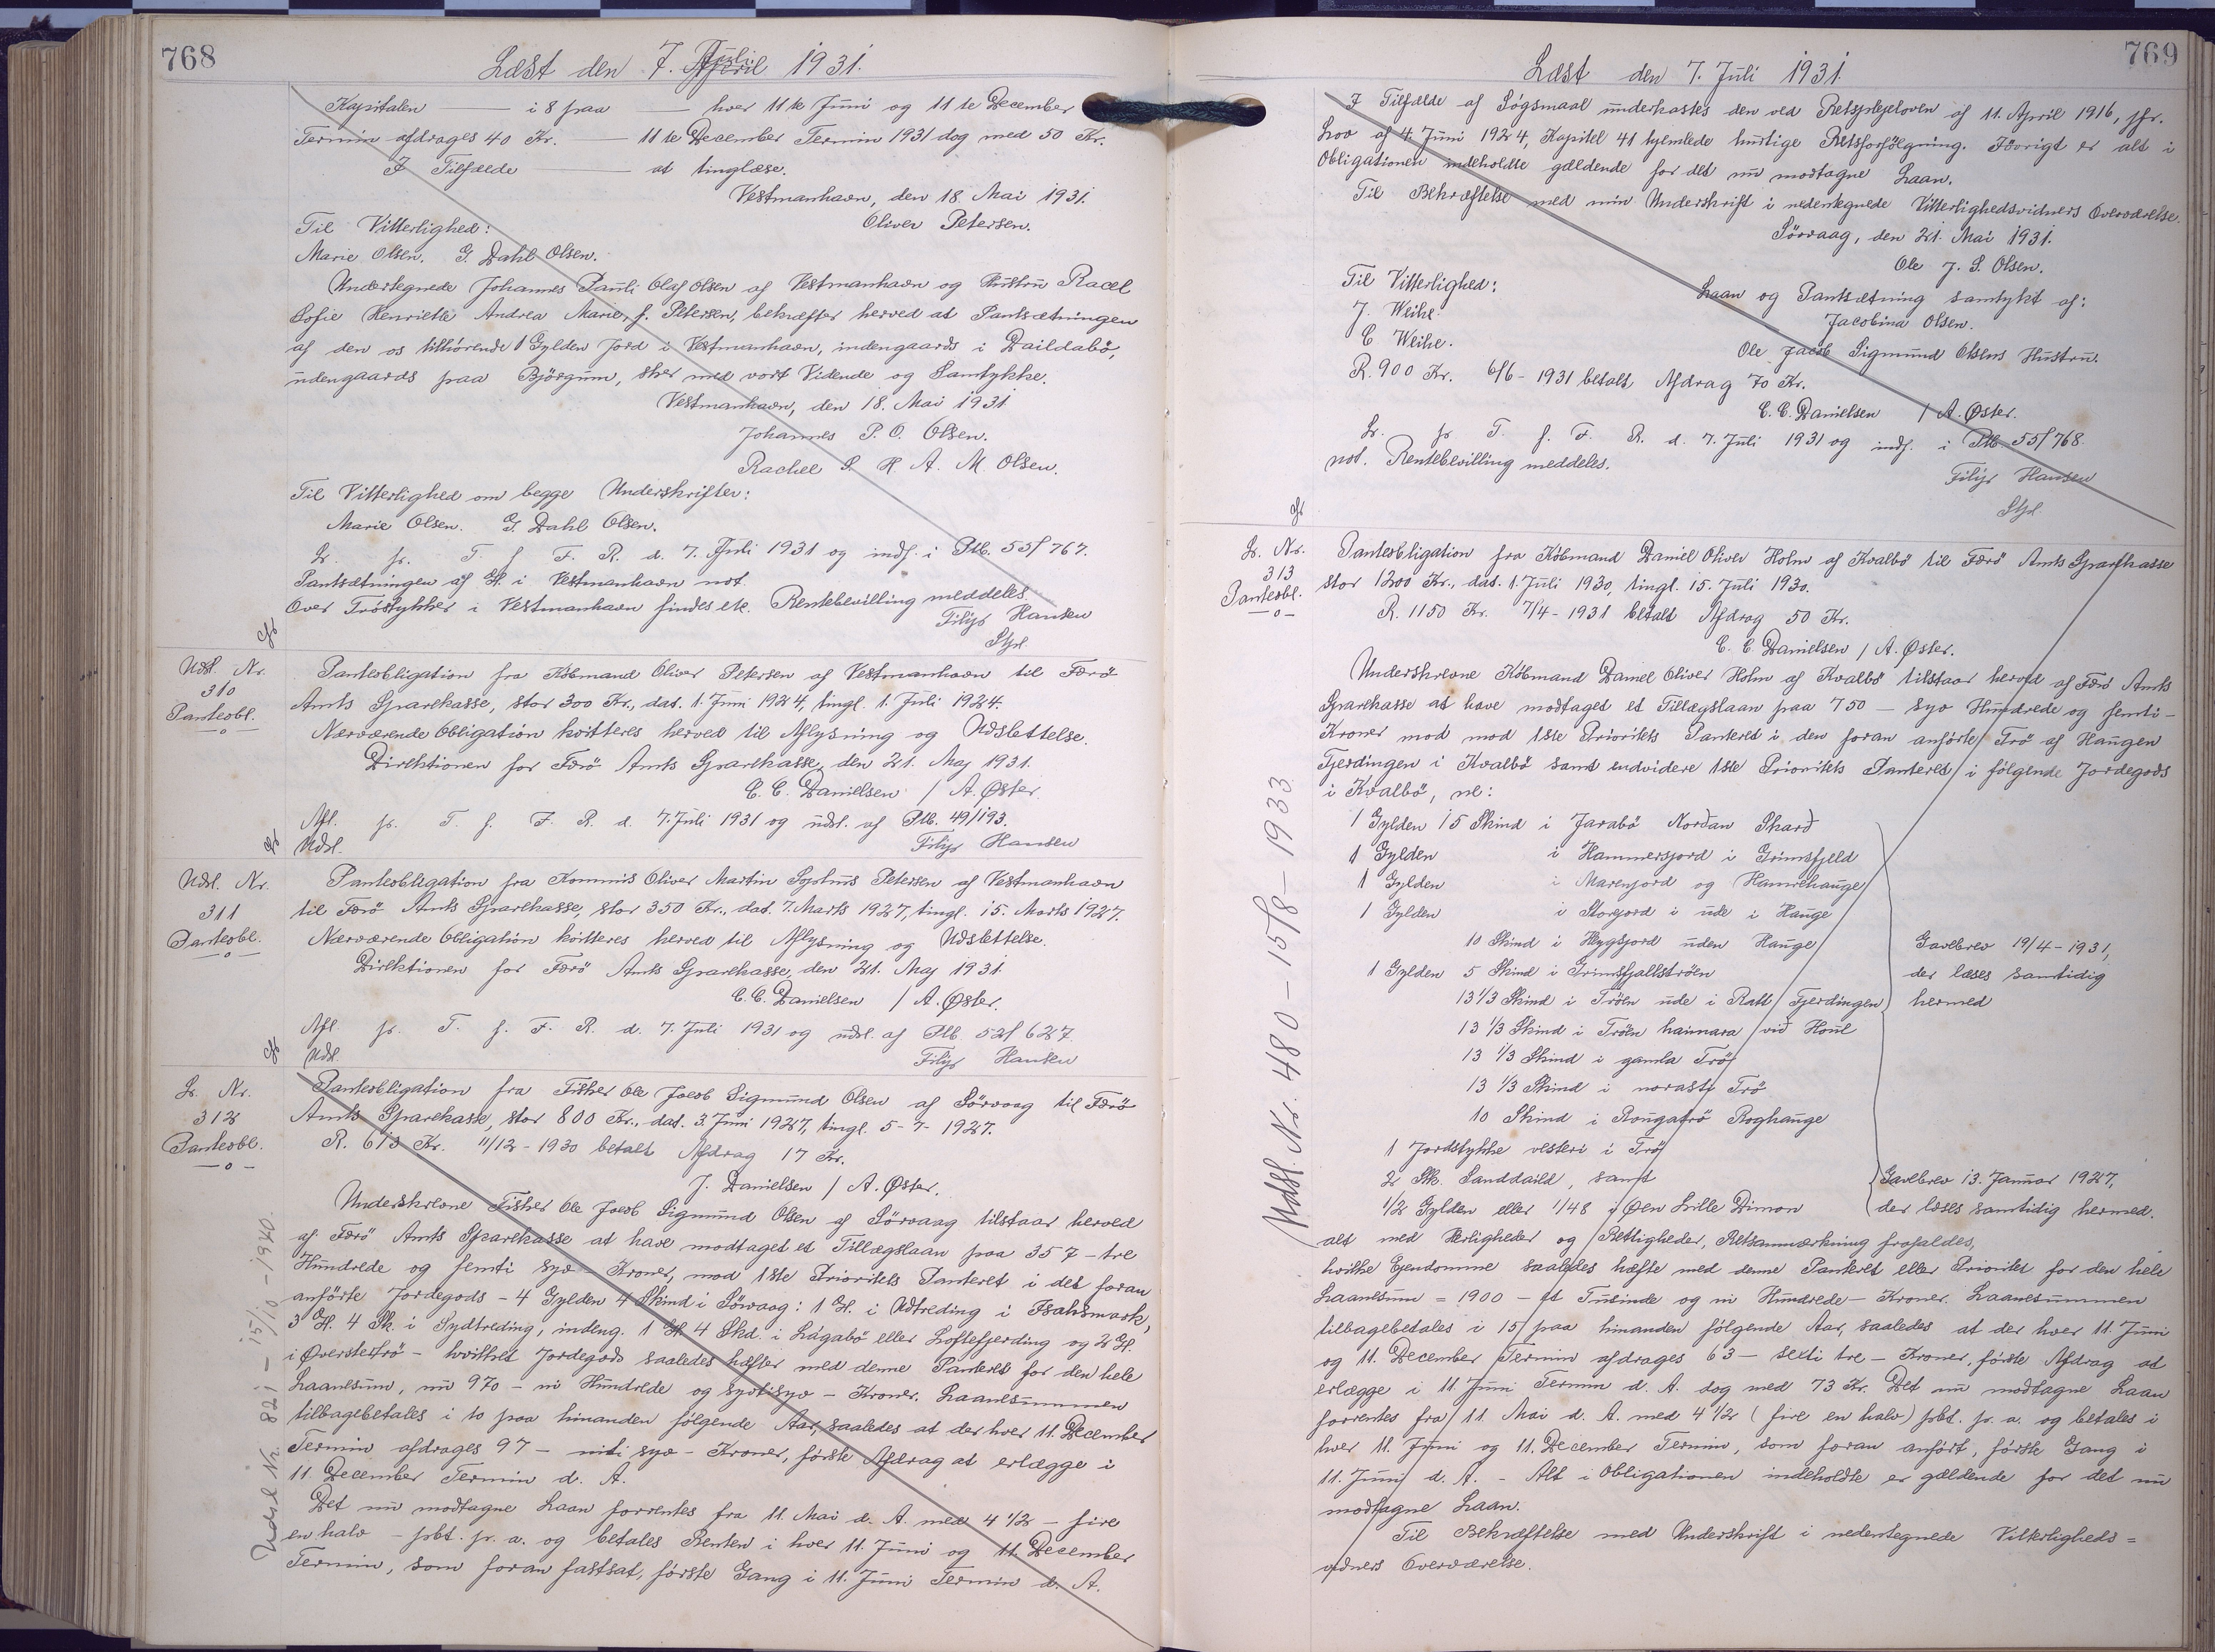 768
Læst den 7. Juli 1931.
Kapitalen — i 8 paa — hver 11te Juni og 11te December
Termin afdrages 40 Kr. — 11te December Termin 1931 dog med 50 Kr.
I Tilfælde — at tinglæse.
Vestmanhavn, den 18. Mai 1931.
Til Vitterlighed: Oliver Petersen.
Marie Olsen. G. Dahl Olsen.
Undertegnede Johannes Pauli Olaf Olsen af Vestmanhavn og Hustru Racel
Sofie Henriette Andrea Marie, f. Petersen, bekræfter herved at Pantsætningen
af den os tilhørende 1 Gylden Jord i Vestmanhavn, indengaards i Daildabö,
udengaards paa Björgum, sker med vort Vidende og Samtykke.
Vestmanhavn, den 18. Mai 1931
Johannes P. O. Olsen.
Rachel S. H. A. M. Olsen.
Til Vitterlighed om begge Underskrifter:
Marie Olsen. G. Dahl Olsen.
L. p. T. f. F. R. d. 7. Juli 1931 og indf. i Ptb. 55/767.
Pantsætningen af Gl. i Vestmanhavn not.
Over Tröstykker i Vestmanhavn findes etc. Rentebevilling meddeles.
Filip Hansen
Stpl.
Udsl. Nr.
310
Panteobl.
—o—
Panteobligation fra Købmand Oliver Petersen af Vestmanhavn til Færö
Amts Sparekasse, stor 300 Kr., dat. 1. Juni 1924, tingl. 1. Juli 1924.
Nærværende Obligation kvitteres herved til Aflysning og Udslettelse.
Direktionen for Færö Amts Sparekasse, den 21. Maj 1931.
C. C. Danielsen / A. Øster.
Afl. p. T. f. F. R. d. 7. Juli 1931 og udsl. af Ptb. 49/193.
Udsl. Filip Hansen
Udsl. Nr.
311
Panteobl.
—o—
Panteobligation fra Kommis Oliver Martin Sophus Petersen af Vestmanhavn
til Færö Amts Sparekasse, stor 350 Kr., dat. 7. Marts 1927, tingl. 15. Marts 1927.
Nærværende Obligation kvitteres herved til Aflysning og Udslettelse.
Direktionen for Færö Amts Sparekasse, den 21. Maj 1931.
C. C. Danielsen / A. Øster.
Afl. p. T. f. F. R. d. 7. Juli 1931 og udsl. af Ptb. 52/627.
Udsl. Filip Hansen
L. Nr.
312
Panteobl.
—o—
Panteobligation fra Fisker Ole Jacob Sigmund Olsen af Sörvaag til Færö
Amts Sparekasse, stor 800 Kr., dat. 3. Juni 1927, tingl. 5-7-1927.
R. 613 Kr. 11/12-1930 betalt Afdrag 17 Kr.
J. Danielsen / A. Øster.
Underskrevne Fisker Ole Jacob Sigmund Olsen af Sörvaag tilstaar herved
af Færö Amts Sparekasse at have modtaget et Tillægslaan paa 357 - tre
Hundrede og femti syv - Kroner, mod 1ste Prioritets Panteret i det foran
anførte Jordegods - 4 Gylden 4 Skind i Sörvaag: 1 Gl. i Udtreding i Isaksmark,
3 Gl. 4 Sk. i Sydtreding, indeng. 1 Gl. 4 Skd. i Lágabö eller Loftefjerding og 2 Gl.
i Øverstetrö - hvilket Jordegods saaledes hæfter med denne Panteret for den hele
Laanesum, nu 970 - ni Hundrede og syvtisyv - Kroner. Laanesummen
tilbagebetales i 10 paa hinanden følgende Aar, saaledes at der hver 11. December
Termin afdrages 97 - niti syv - Kroner, første Afdrag at erlægge i
11. December Termin d. A.
Det nu modtagne Laan forrentes fra 11. Mai d. A. med 4 1/2 - fire
en halv - pbt. p. a. og betales Renten i hver 11. Juni og 11. December
Termin, som foran fastsat, første Gang i 11. Juni Termin d. A.
Udsl. Nr. 821 - 15/10 - 1940.
769
Læst den 7. Juli 1931.
I Tilfælde af Søgsmaal underkastes den ved Retsplejeloven af 11. April 1916, jfr.
Lov af 4. Juni 1924, Kapitel 41 hjemlede hurtige Retsforfølgning. Iøvrigt er alt i
Obligationen indeholdte gældende for det nu modtagne Laan.
Til Bekræftelse med min Underskrift i nedentegnede Vitterlighedsvidners Overværelse.
Sörvaag, den 21. Mai 1931.
Ole J. S. Olsen.
Til Vitterlighed: Laan og Pantsætning samtykt af:
J. Weihe. Jacobina Olsen.
C Weihe. Ole Jacob Sigmund Olsens Hustru.
R. 900 Kr. 6/6-1931 betalt Afdrag 70 Kr.
C. C. Danielsen / A. Øster.
L. p. T. f. F. R. d. 7. Juli 1931 og indf. i Ptb. 55/768.
not. Rentebevilling meddeles.
Filip Hansen
Stpl.
L. Nr.
313
Panteobl.
—o—
Panteobligation fra Købmand Daniel Oliver Holm af Kvalbö til Færö Amts Sparekasse
stor 1200 Kr., dat. 1. Juli 1930, tingl. 15. Juli 1930.
R. 1150 Kr. 7/4-1931 betalt Afdrag 50 Kr.
C. C. Danielsen / A. Øster.
Underskrevne Købmand Daniel Oliver Holm af Kvalbö tilstaar herved af Færö Amts
Sparekasse at have modtaget et Tillægslaan paa 750 - syv Hundrede og femti -
Kroner mod mod 1ste Prioritets Panteret i den foran anførte Trö af Haugen
Fjerdingen i Kvalbö samt endvidere 1ste Prioritets Panteret i følgende Jordegods
i Kvalbö, nl:
1 Gylden 15 Skind i Jarabö Nordan Skard
1 Gylden i Hammersjord i Grimsfjeld
1 Gylden i Marenjord og Hamrehauge
1 Gylden i Storjord i ude i Hauge
10 Skind i Heygsjord uden Hauge
1 Gylden 5 Skind i Grimsfjallströen
13 1/3 Skind i Tröen ude i Ratt Fjerdingen
13 1/3 Skind i Tröen haimara vid Houl
13 1/3 Skind i gamla Trö
13 1/3 Skind i norasta Trö
10 Skind i Rougatrö Roghauge
Gavebrev 19/4-1931,
der læses samtidig
hermed
1 Jordstykke vesteri i Trö
2 Sk. Sanddaild, samt
1/2 Gylden eller 1/48 i Øen Lille Dimon
Gavebrev 13. Januar 1927,
der læses samtidig hermed.
alt med Herligheder og Rettigheder, Retsanmærkning frafaldes,
hvilke Ejendomme saaledes hæfte med denne Panteret eller Prioritet for den hele
Laanesum = 1900 - et Tusinde og ni Hundrede - Kroner. Laanesummen
tilbagebetales i 15 paa hinanden følgende Aar, saaledes at der hver 11. Juni
og 11. December Termin afdrages 63 - seksti tre - Kroner, første Afdrag at
erlægge i 11. Juni Termin d. A. dog med 73 Kr. Det nu modtagne Laan
forrentes fra 11. Mai d. A. med 4 1/2 (fire en halv) pbt. p. a. og betales i
hver 11. Juni og 11. December Termin, som foran anført, første Gang i
11. Juni d. A. - Alt i Obligationen indeholdte er gældende for det nu
modtagne Laan.
Til Bekræftelse med Underskrift i nedentegnede Vitterligheds=
vidners Overværelse.
Udsl. Nr. 480 - 15/8 - 1933